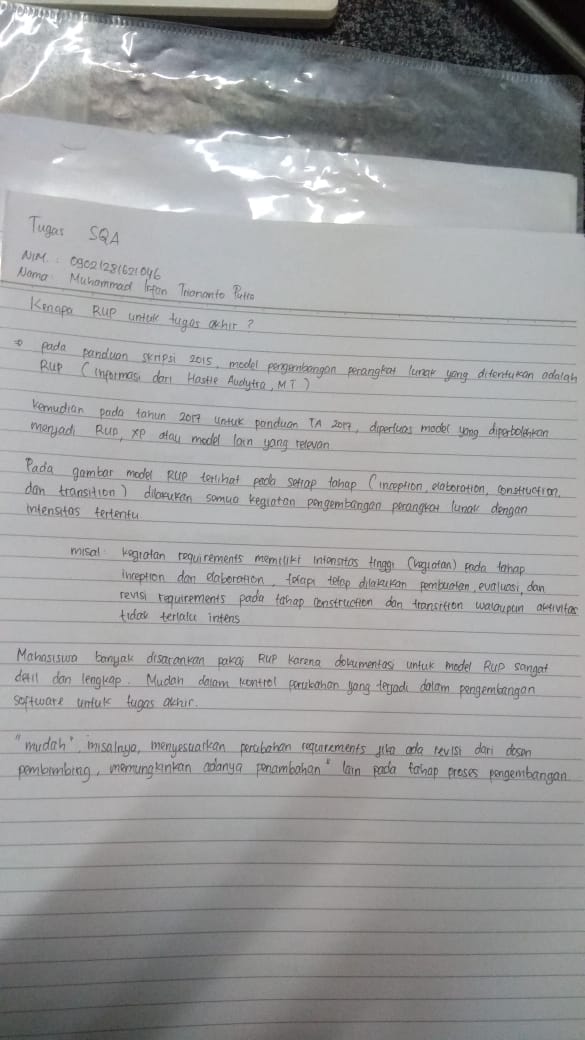 Tugas SQA
NIM : 09021281621046
Nama : Muhammad Irfan Triananto Putra
Kenapa RUP untuk tugas akhir ?
⇒ pada panduan skripsi 2015, model pengembangan perangkat lunak yang ditentukan adalah
RUP (informasi dari Hastie Audytra, MT)
kemudian pada tahun 2017 untuk panduan TA 2017, diperluas model yang diperbolehkan
menjadi RUP, XP atau model lain yang relevan
Pada gambar model RUP terlihat pada setiap tahap (inception, elaboration, construction,
dan transition) dilakukan semua kegiatan pengembangan perangkat lunak dengan
intensitas tertentu
misal : kegiatan requirements memiliki intensitas tinggi (kegiatan) pada tahap
inception dan elaboration, tetapi tetap dilakukan pembuatan, evaluasi, dan
revisi requirements pada tahap construction dan transition walaupun aktivitas
tidak terlalu intens
Mahasiswa banyak disarankan pakai RUP karena dokumentasi untuk model RUP sangat
detil dan lengkap. Mudah dalam kontrol perubahan yang terjadi dalam pengembangan
software untuk tugas akhir.
"mudah", misalnya, menyesuaikan perubahan requirements jika ada revisi dari dosen
pembimbing, memungkinkan adanya penambahan" lain pada tahap proses pengembangan